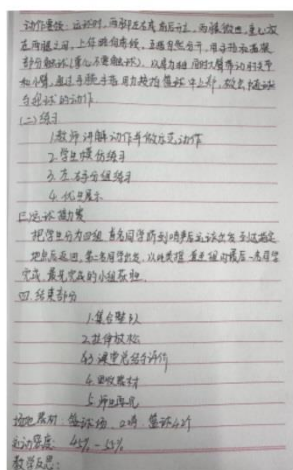 动作要领：运球时，两脚左右前后开立，两膝微屈，重心放
在两腿之间，上体稍向前倾，五指自然分开，用手指和指根
部分触球（掌心不要触球），以肩为轴，用大臂带动前臂
和小臂，通过手腕手指用力按拍篮球中上部，
与迎球的动作。
(二)练习
1.教师讲解动作并做示范动作
2.学生模仿练习
3.左右手分组练习
4.优生展示
三运球接力赛
把学生分为四组，首名同学听到哨声后运球出发至过指定
地点后返回，第二名同学出发，以此类推，直至组内最后一名同学
完成，最先完成的小组获胜。
四.结束部分
1.集合整队
2.拉伸放松
3课堂总结与评价
4.回收器材
5.师生再见
场地器材：篮球场 口哨 篮球42个
运动密度：45%-55%
教学反思：